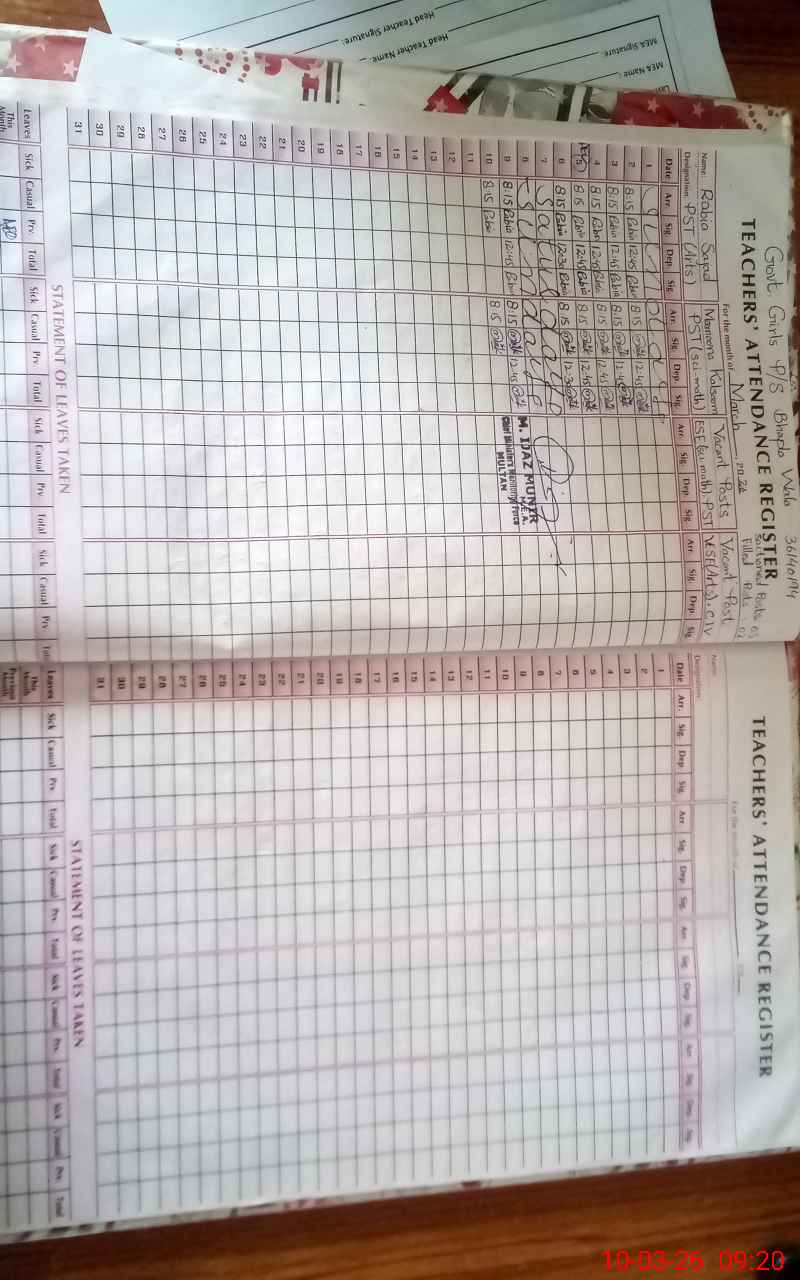 Govt. Girls P/S Bhaplo Wala 36140194
TEACHERS' ATTENDANCE REGISTER
For the month of March 2026
Filled Posts : 02
Name: Rabia Sajad Mamoona Kalsoom Vacant Posts Vacant Post
Designation: PST (Arts) PST (sci-math) ESE (sci-math).PST
Date Arr. Sig. Dep. Sig. Arr. Sig. Dep. Sig. Arr. Sig. Dep. Sig. Arr. Sig. Dep. Sig.
1 Sunday
2 8:15 Rabia 12:45 Rabia 8:15 12:45
3 8:15 Rabia 12:45 Rabia 8:15 12:45
4 8:15 Rabia 12:45 Rabia 8:15 12:45
5 8:15 Rabia 12:45 Rabia 8:15 12:45
6 8:15 Rabia 12:30 Rabia 8:15 12:30
7 Saturday
8 Sunday
9 8:15 Rabia 12:45 Rabia 8:15 12:45
10 8:15 Rabia 8:15
M. IJAZ MUNIR
M.E.A.
Chief Minister's Monitoring Force
MULTAN
11
12
13
14
15
16
17
18
19
20
21
22
23
24
25
26
27
28
29
30
31
STATEMENT OF LEAVES TAKEN
Leaves Sick Casual Prv. Total Sick Casual Prv. Total Sick Casual Prv. Total Sick Casual Prv. Total
This Month
TEACHERS' ATTENDANCE REGISTER
For the month of
Name:
Designation:
Date Arr. Sig. Dep. Sig. Arr. Sig. Dep. Sig. Arr. Sig. Dep. Sig. Arr. Sig. Dep. Sig.
1
2
3
4
5
6
7
8
9
10
11
12
13
14
15
16
17
18
19
20
21
22
23
24
25
26
27
28
29
30
31
STATEMENT OF LEAVES TAKEN
Leaves Sick Casual Prv. Total Sick Casual Prv. Total Sick Casual Prv. Total Sick Casual Prv. Total
This Month
Previous Month
Head Teacher Signature:
Head Teacher Name:
MEA Signature:
MEA Name
10-03-26 09:20